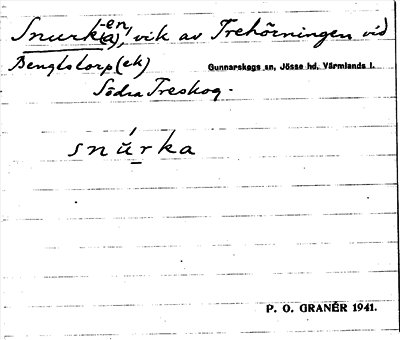 Snurk(-en/(a)), vik av Trehörningen vid
Bengtstorp (ek) Gunnarskogs sn, Jösse hd, Värmlands l.
Södra Treskog.
snúrka
P. O. GRANÉR 1941.